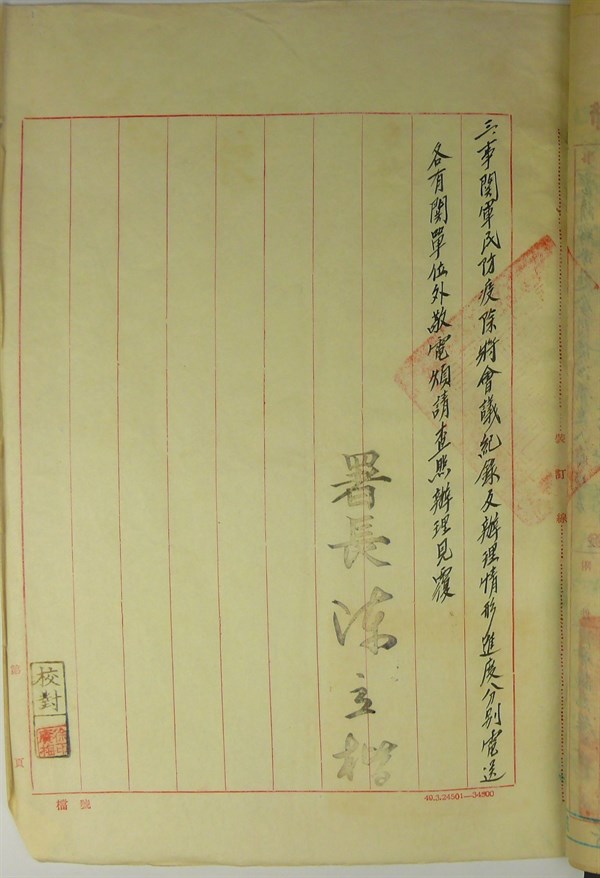 三、事関軍民防疫除將會議紀錄及辦理情形進度分別電送
各有関單位外敬電煩請查照辦理見覆
署長 陳立楷
裝訂線
校對
第
頁
檔號
40.3.24501—34500